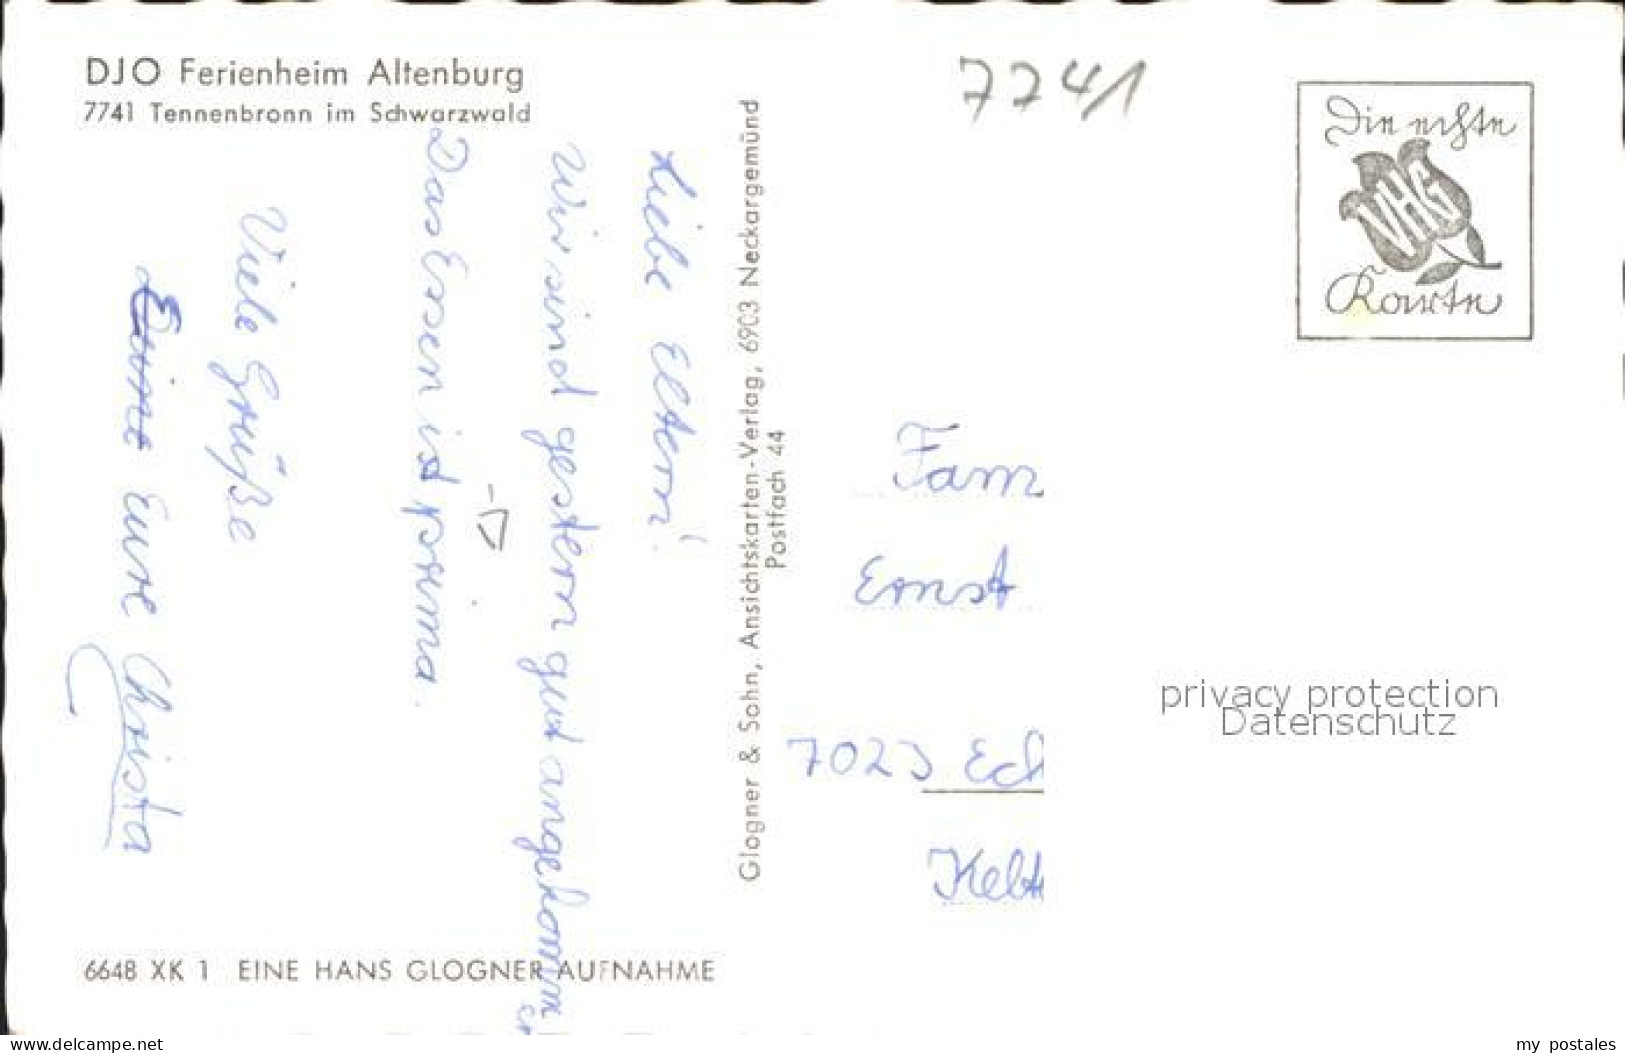 DJO Ferienheim Altenburg
7741 Tennenbronn im Schwarzwald
Liebe Eltern!
Wir sind gestern gut angekomm
en
Das Essen ist prima.
Viele Grüße
Eure Christa
6648 XK 1 EINE HANS GLOGNER AUFNAHME
Glogner & Sohn, Ansichtskarten-Verlag, 6903 Neckargemünd
Postfach 44
7741
Die echte
VHG
Karte
Fam
Ernst
7023 Ech
Kelt
privacy protection
Datenschutz
www.delcampe.net
my_postales